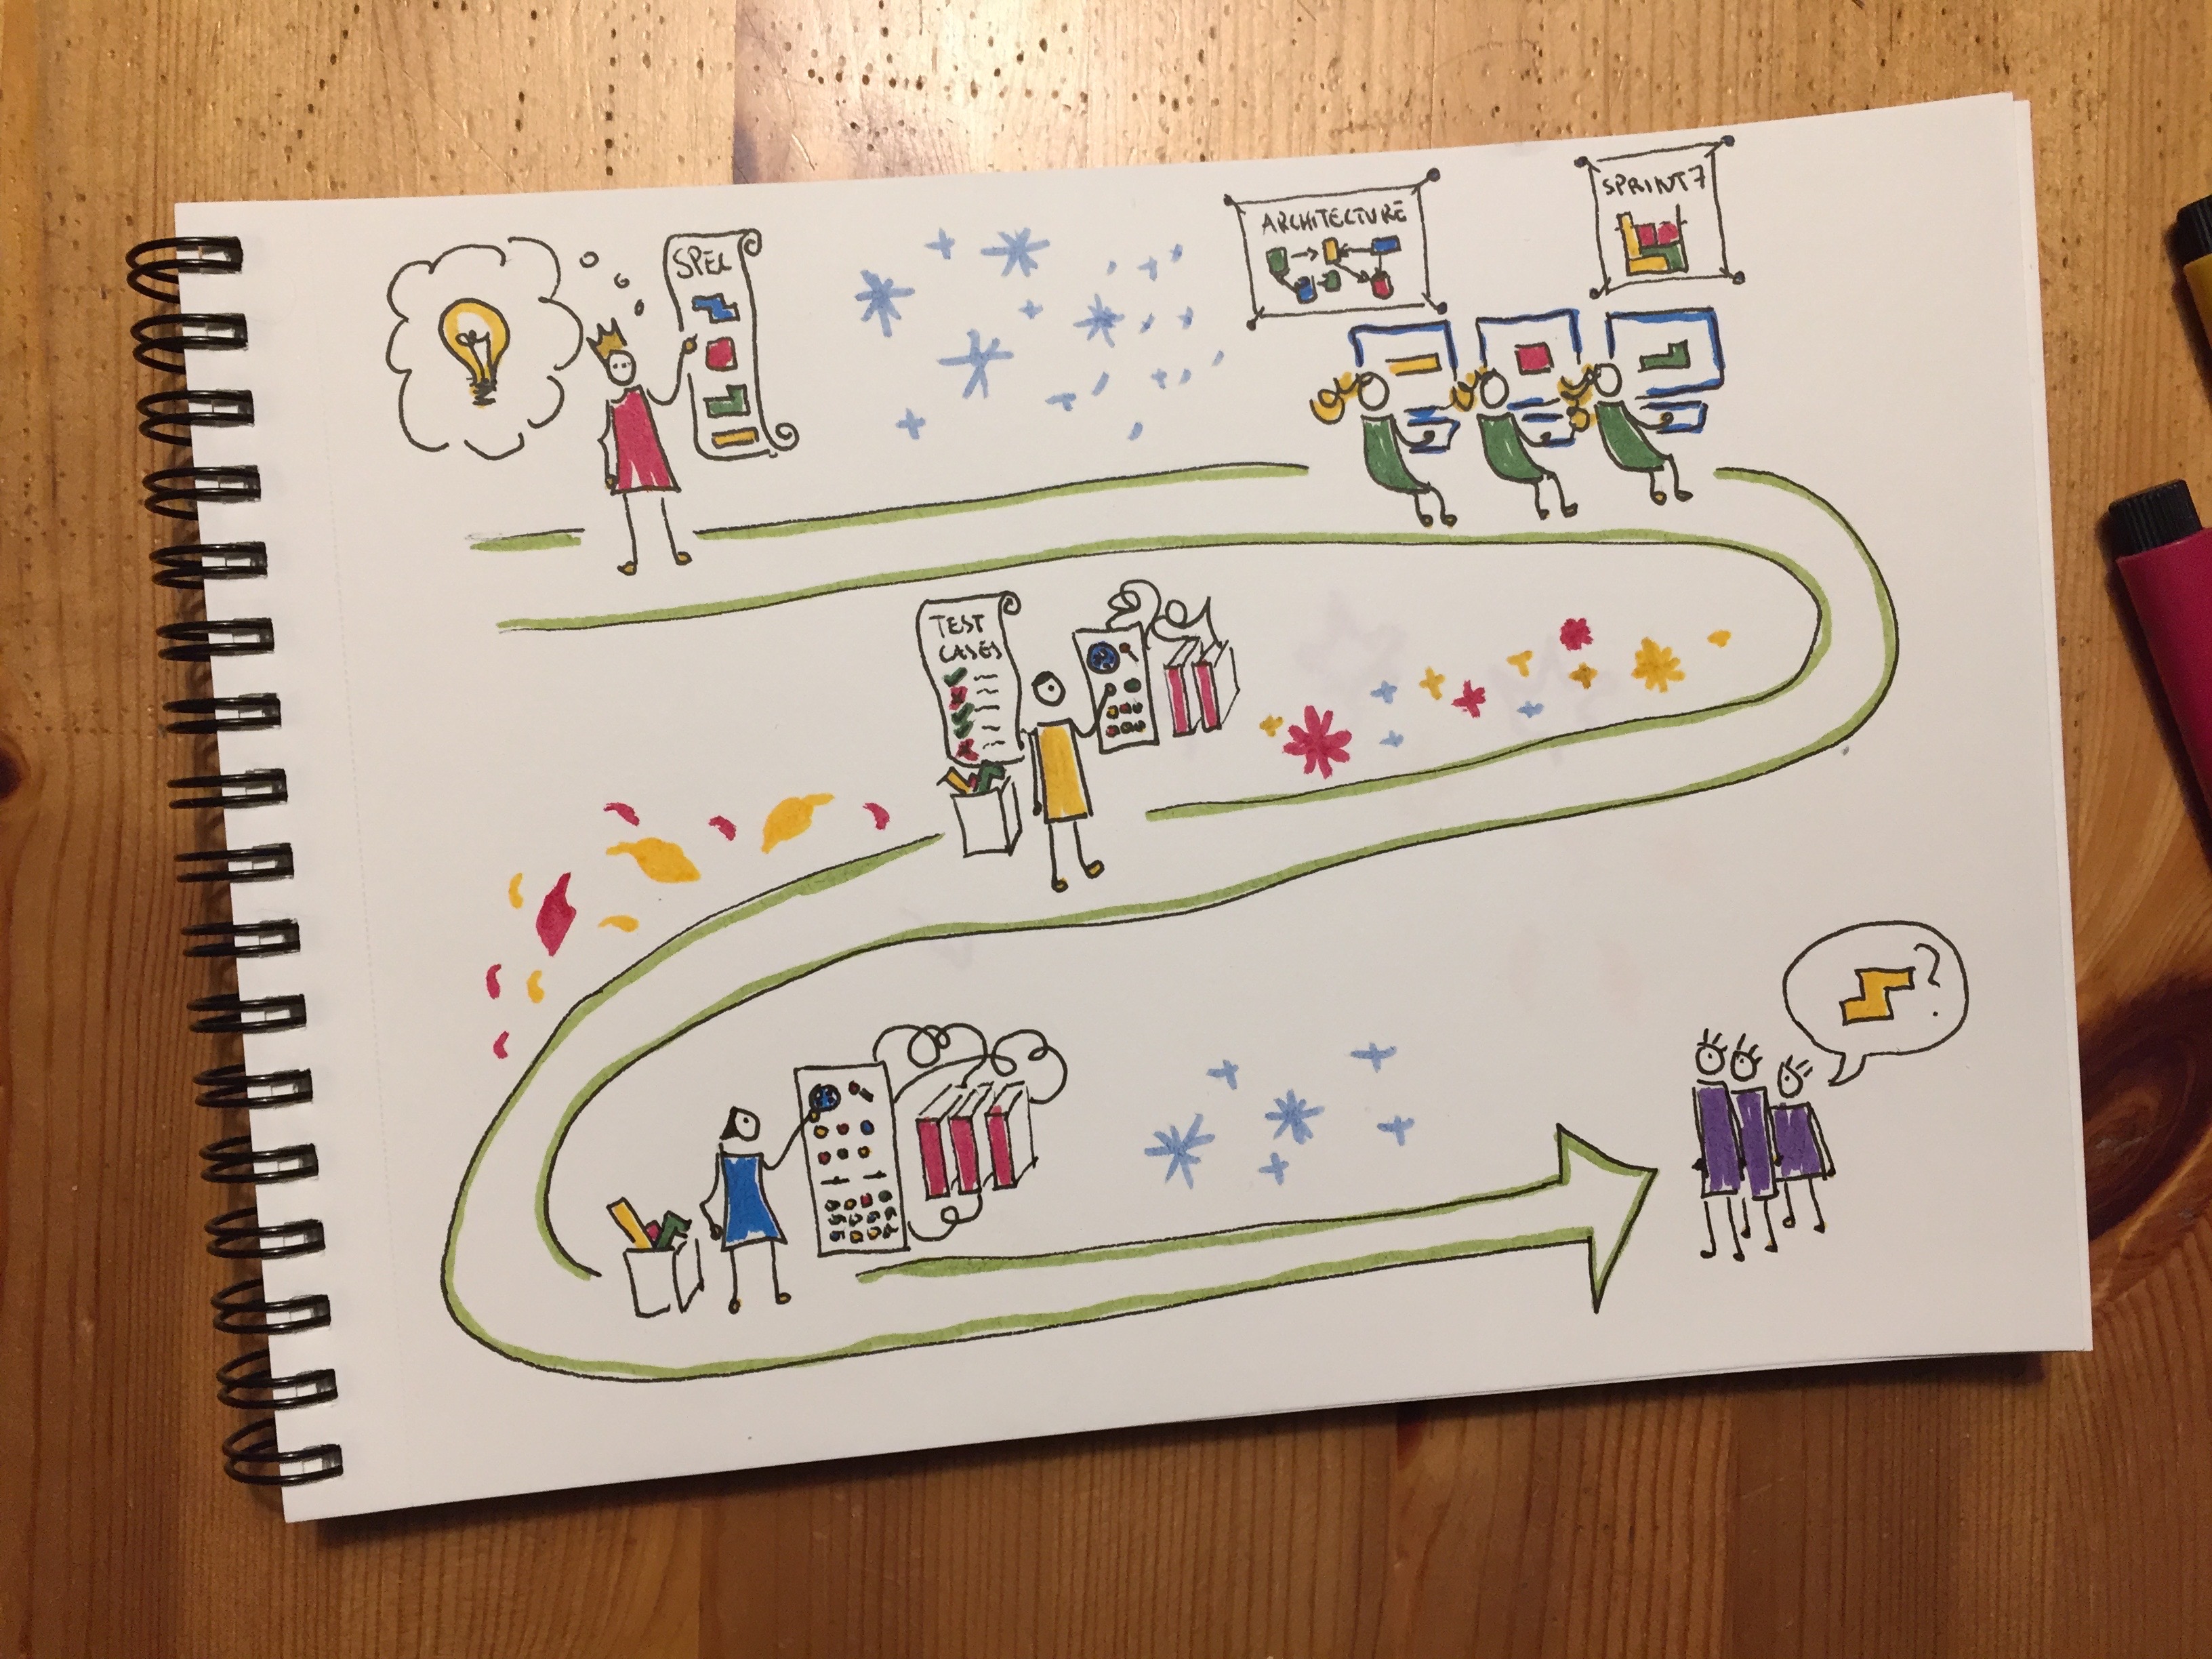 SPEC
ARCHITECTURE
SPRINT 7
TEST
CASES
?